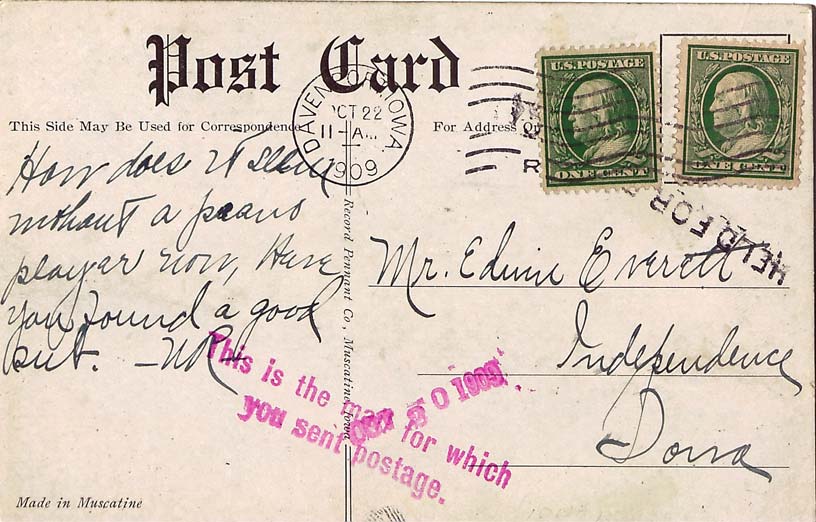 Post Card
This Side May Be Used for Correspondence
For Address
DAVENPORT, IOWA
OCT 22
11-AM
1909
U.S. POSTAGE
ONE CENT
U.S. POSTAGE
ONE CENT
HELD FOR
How does it seem
without a piano
player now, Have
you found a good
one. -
Mr. Edwin Everett
Independence
Iowa
Record Pennant Co., Muscatine, Iowa
This is the mail for which
you sent postage.
OCT 30 1909
Made in Muscatine